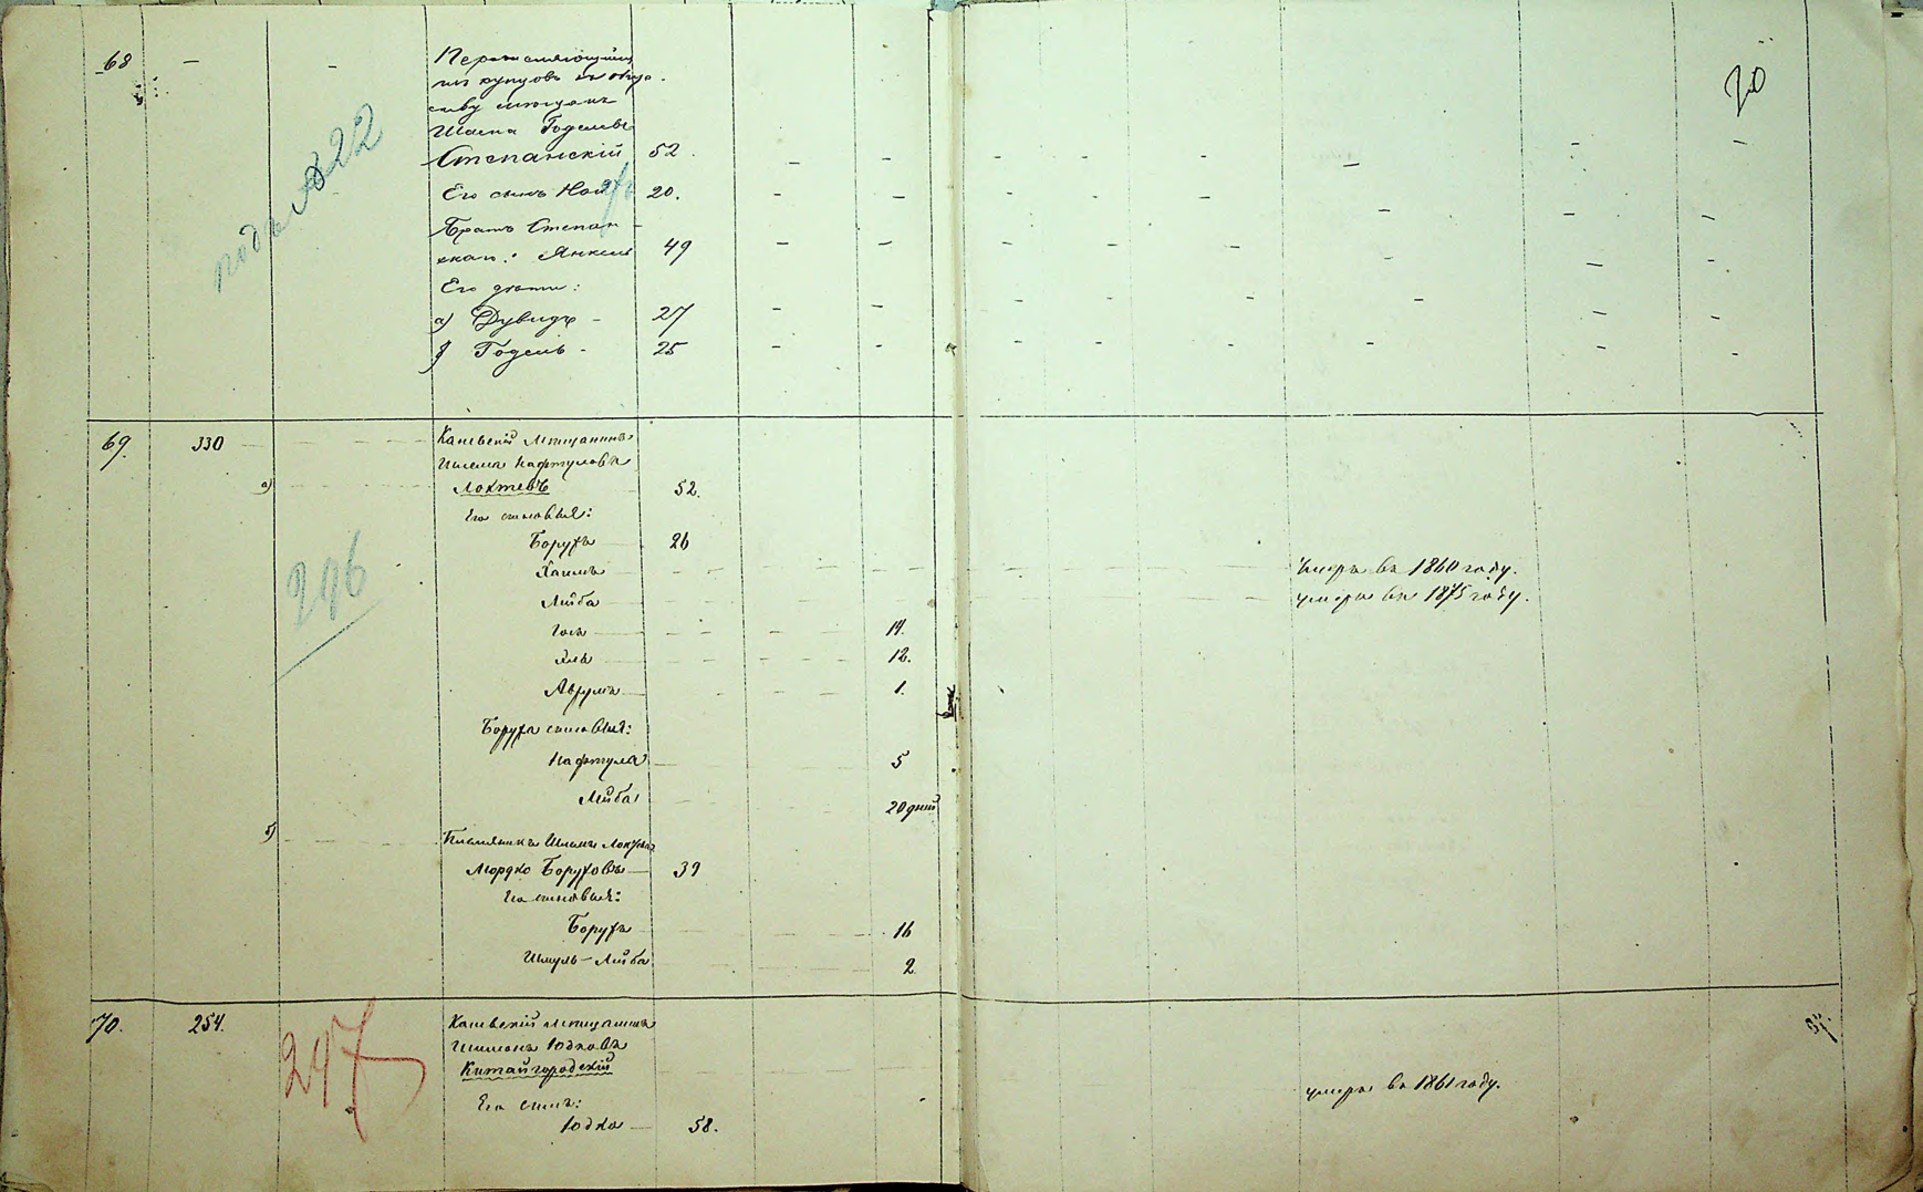 20
68 — —
Перечисляющийся
изъ купцовъ къ обще-
ству мещанъ
Годелевъ
Степанскій 52.
Его сынъ 20.
Братъ Степан-
скаго: Янкель 49
Его дети:
а) Дувидъ - 27
Годель - 25
подъ № 22
69. 330 Каневскій Мещанинъ
Нафтуловъ
а) Локтевъ 52.
Его сыновья:
Борухъ 26
Хаимъ умеръ въ 1860 году.
Лейба умеръ въ 1875 году.
14.
12.
Аврумъ 1.
Боруха сыновья:
Нафтула 5
Лейба 20 дней
296
б) Племянникъ
Мордко Боруховъ 39
Его сыновья:
Борухъ 16
Шмуль-Лейба 2
70. 254. Каневскій Мещанинъ
Юдковъ
Китайгородскій умеръ въ 1861 году.
Его сынъ:
Юдко 58.
297